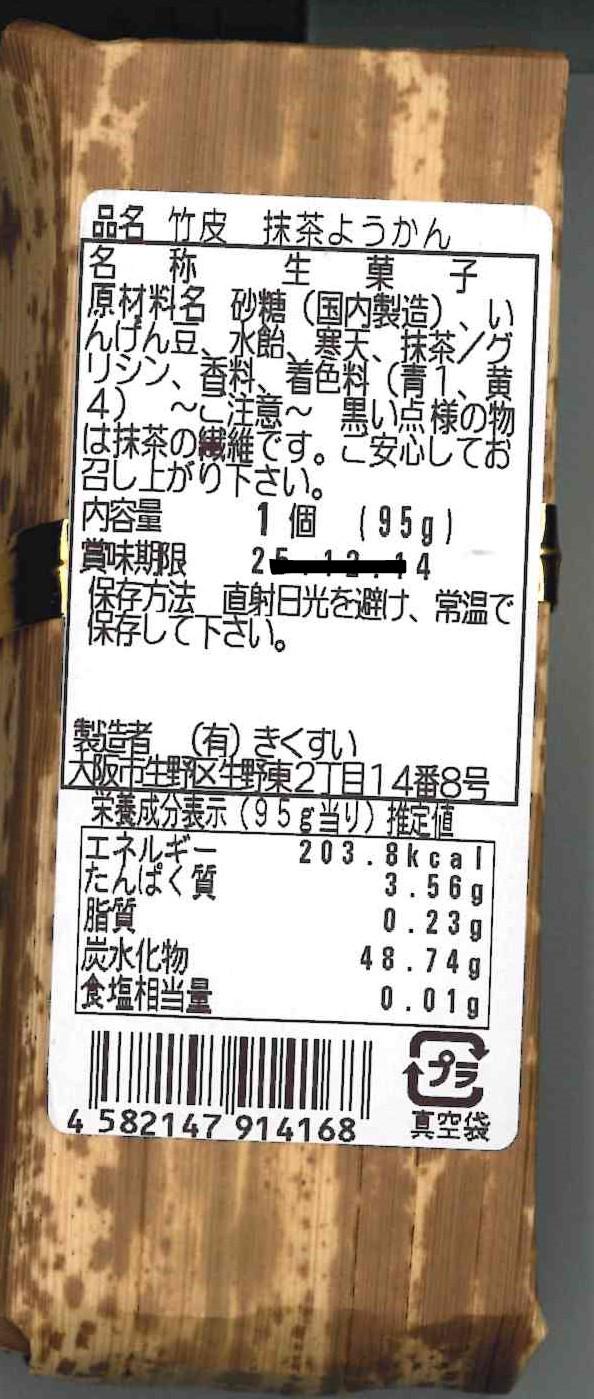 品名 竹皮 抹茶ようかん
名称 生菓子
原材料名 砂糖（国内製造）、い
んげん豆、水飴、寒天、抹茶／グ
リシン、香料、着色料（青1、黄
4） ～ご注意～ 黒い点様の物
は抹茶の繊維です。ご安心してお
召し上がり下さい。
内容量 1個 （95g）
賞味期限
保存方法 直射日光を避け、常温で
保存して下さい。
製造者 （有）きくすい
大阪市生野区生野東2丁目14番8号
栄養成分表示（95g当り）推定値
エネルギー 203.8kcal
たんぱく質 3.56g
脂質 0.23g
炭水化物 48.74g
食塩相当量 0.01g
4 582147 914168
プラ
真空袋